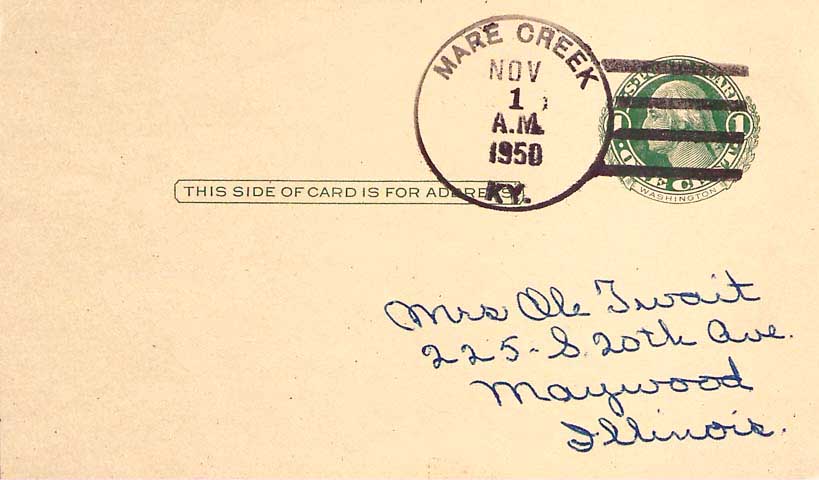 MARE CREEK
NOV
1
A.M.
1950
KY.
1 1
WASHINGTON
THIS SIDE OF CARD IS FOR ADDRESS
Mrs Ole Twait
225-S. 20th Ave.
Maywood
Illinois.